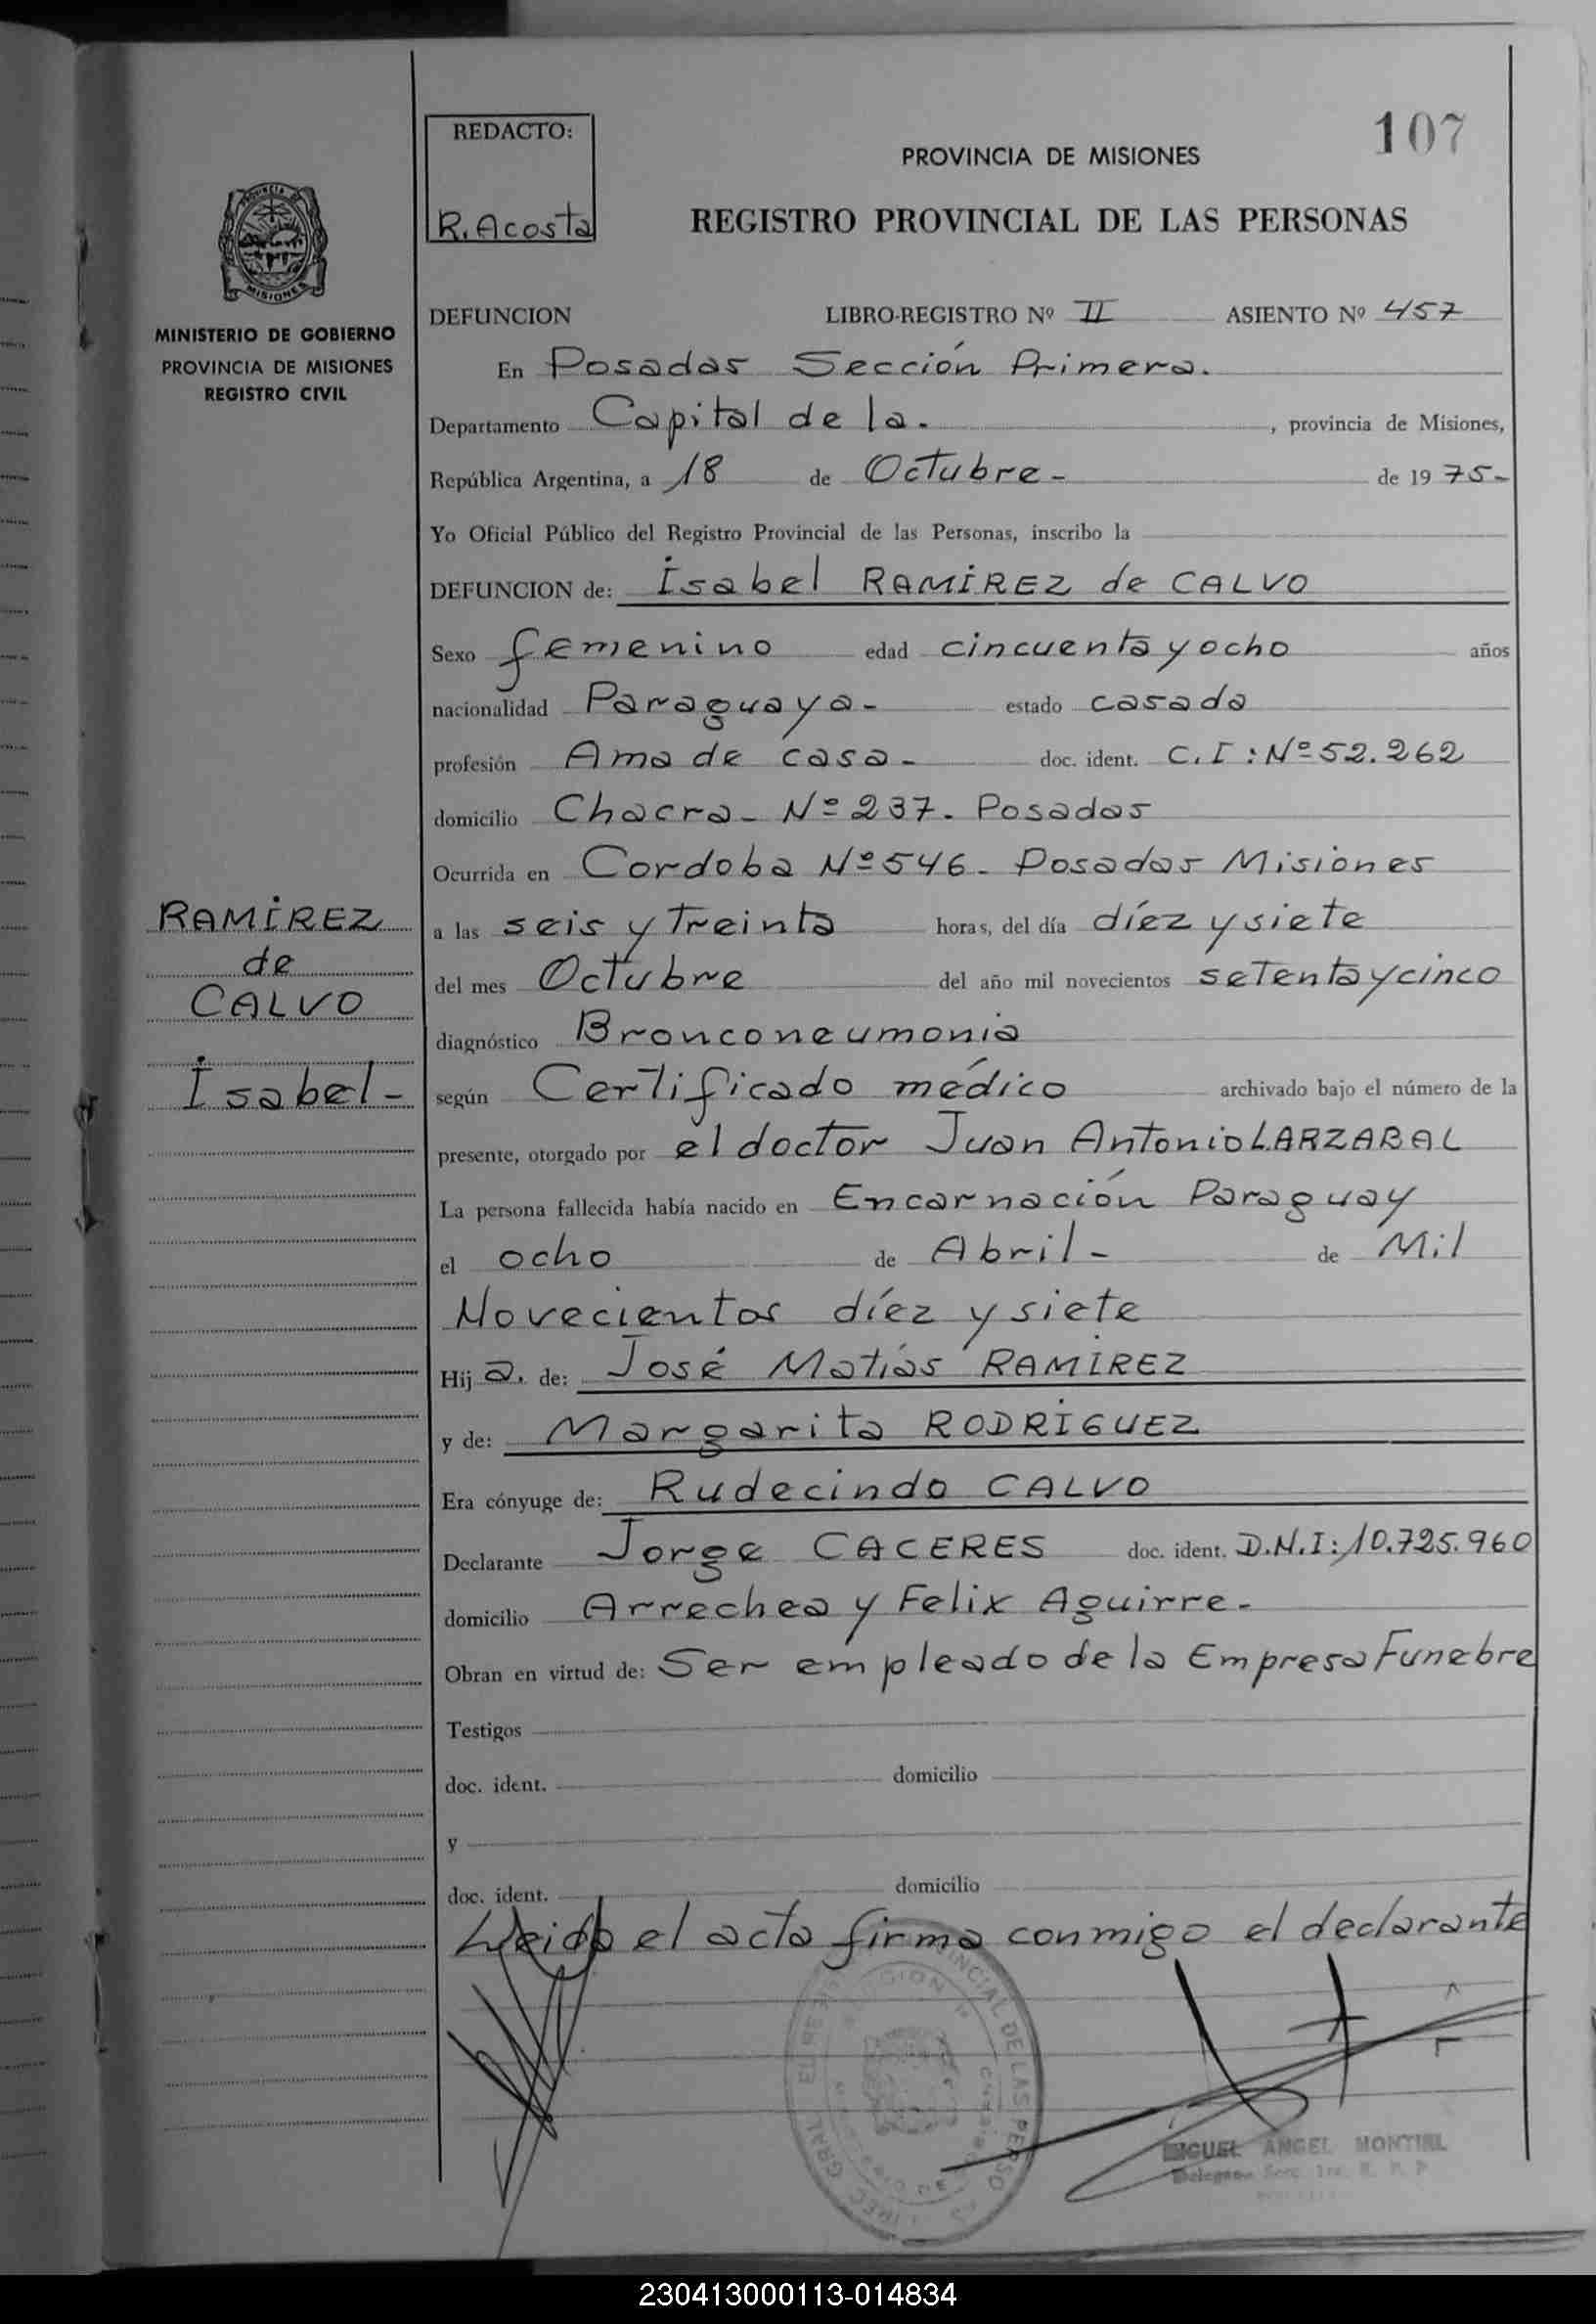 107
REDACTO:
R. Acosta
PROVINCIA DE MISIONES
REGISTRO PROVINCIAL DE LAS PERSONAS
PROVINCIA DE
MISIONES
MINISTERIO DE GOBIERNO
PROVINCIA DE MISIONES
REGISTRO CIVIL
DEFUNCION LIBRO-REGISTRO Nº II ASIENTO Nº 457
En Posadas Sección Primera.
Departamento Capital de la. , provincia de Misiones,
República Argentina, a 18 de Octubre- de 1975-
Yo Oficial Público del Registro Provincial de las Personas, inscribo la
DEFUNCION de: Isabel RAMIREZ de CALVO
Sexo femenino edad cincuenta y ocho años
nacionalidad Paraguaya- estado casada
profesión Ama de casa- doc. ident. C.I: Nº 52.262
domicilio Chacra- Nº 237- Posadas
Ocurrida en Cordoba Nº 546- Posadas Misiones
a las seis y treinta horas, del día díez y siete
del mes Octubre del año mil novecientos setenta y cinco
diagnóstico Bronconeumonia
según Certificado médico archivado bajo el número de la
presente, otorgado por el doctor Juan Antonio LARZABAL
La persona fallecida había nacido en Encarnación Paraguay
el ocho de Abril- de Mil
Novecientos díez y siete
Hij a. de: José Matías RAMIREZ
y de: Margarita RODRIGUEZ
Era cónyuge de: Rudecindo CALVO
Declarante Jorge CACERES doc. ident. D.N.I: 10.725.960
domicilio Arrechea y Felix Aguirre-
Obran en virtud de: Ser empleado de la Empresa Funebre
Testigos
doc. ident. domicilio
y
doc. ident. domicilio
Leida el acta firma conmigo el declarante
RAMIREZ
de
CALVO
Isabel-
MIGUEL ANGEL MONTIEL
230413000113-014834